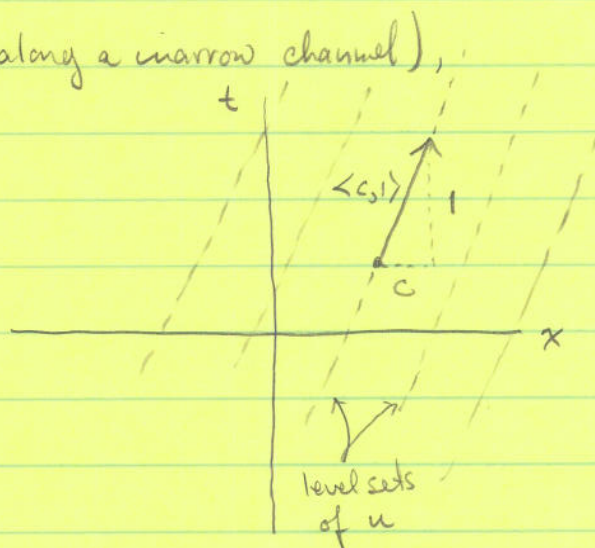 along a narrow channel),
t
<c,1>
1
c
x
level sets
of u